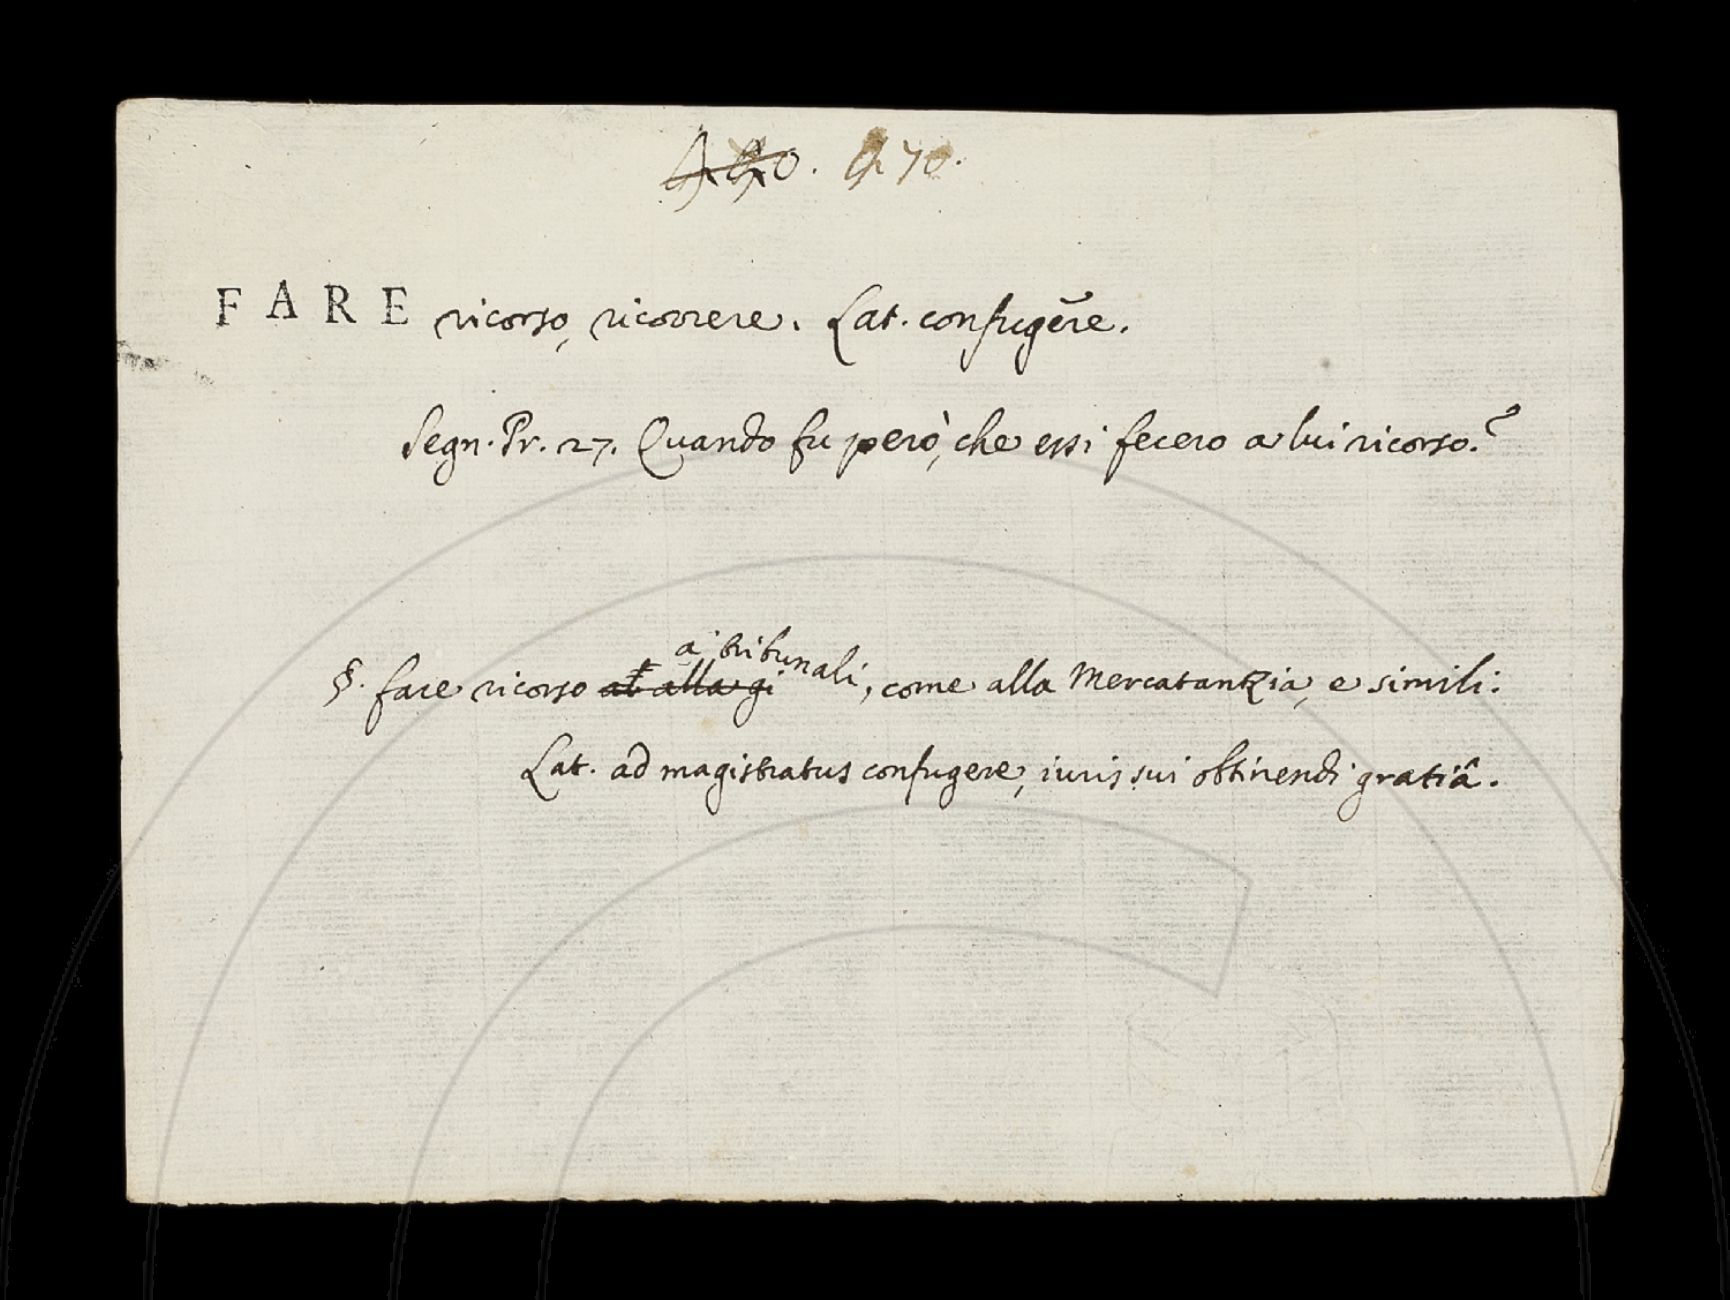 470.
FARE ricorso, ricorrere. Lat. confugĕre.
Segn. Pr. 27. Quando fu però, che essi fecero a lui ricorso?
§. fare ricorso a' tribunali, come alla Mercatanzia, e simili:
Lat. ad magistratus confugere, iuris sui obtinendi gratiâ.